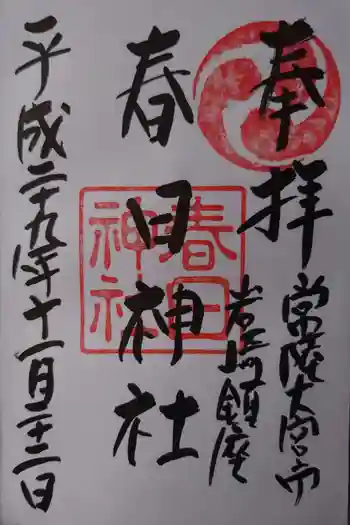 奉拝
常陸大宮市
岩崎鎮座
春日神社
春日神社
平成二十九年十一月二十二日